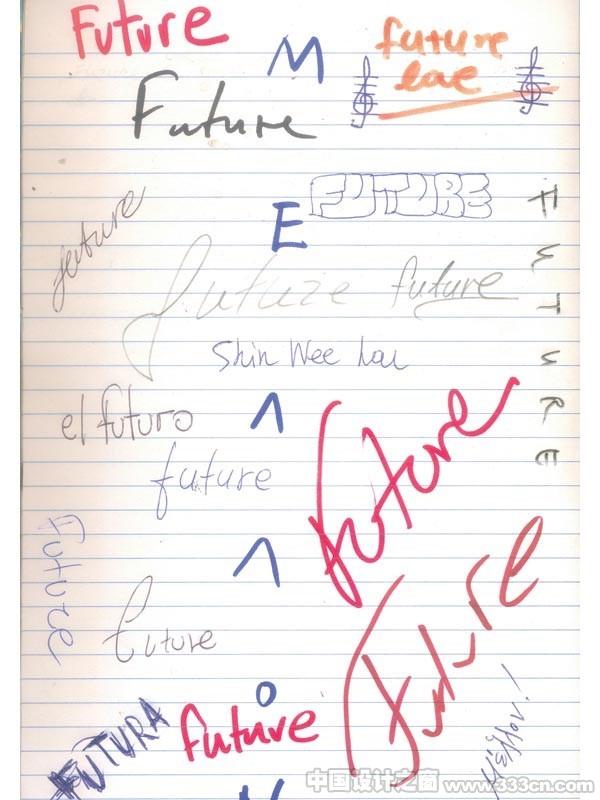 Future
M
future
Future
FUTURE
E
FUTURE
future
future
future
Shin Wee
el futuro
Λ
future
future
Λ
Future
future
future
Ο
FUTURA
future
Μέλλον!
中国设计之窗
www.333cn.com